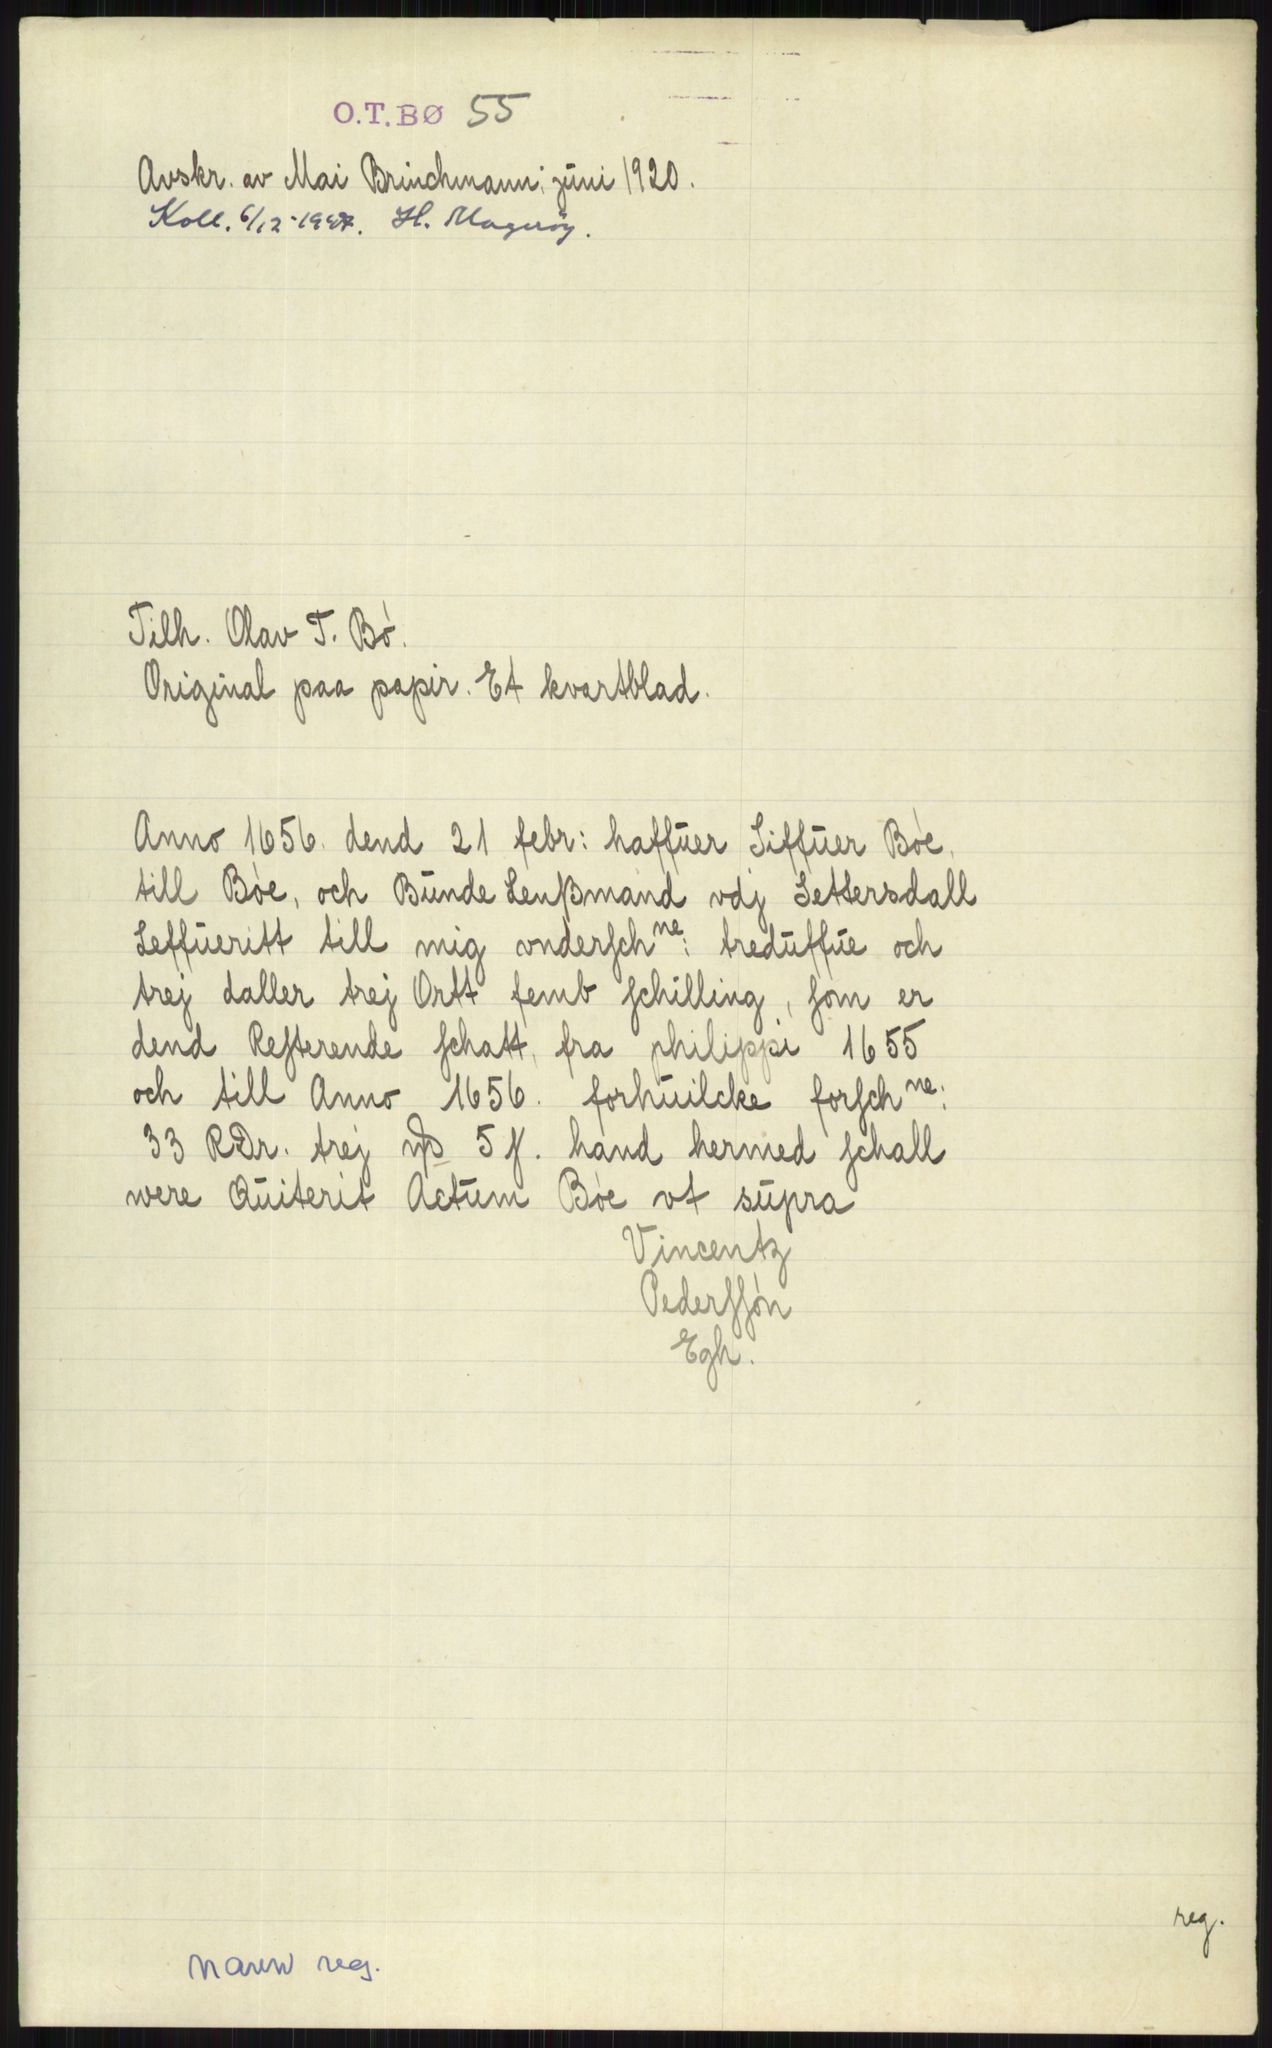 O.T.BØ 55
Avskr. av Mai Brinchmann, juni 1920.
Koll. 6/12-1947. H. Magerøy.
Tilh. Olav T. Bó.
Original paa papir. Et kvartblad.
Anno 1656. dend 21 febr: haffuer Siffuer Bòe,
till Bòe, och Bunde Lenßmand vdj Settersdall
Leffueritt till mig vndersch ne: treduffue och
trej daller trej Ortt femb schilling, som er
dend Resterende schatt, fra philippi 1655
och till Anno 1656. forhuilcke forsch ne:
33 RDr. trej 5 ſ. hand hermed schall
were Quiterit Actum Bòe vt supra
Vincentz
Pederssón
Egh.
reg.
navn reg.